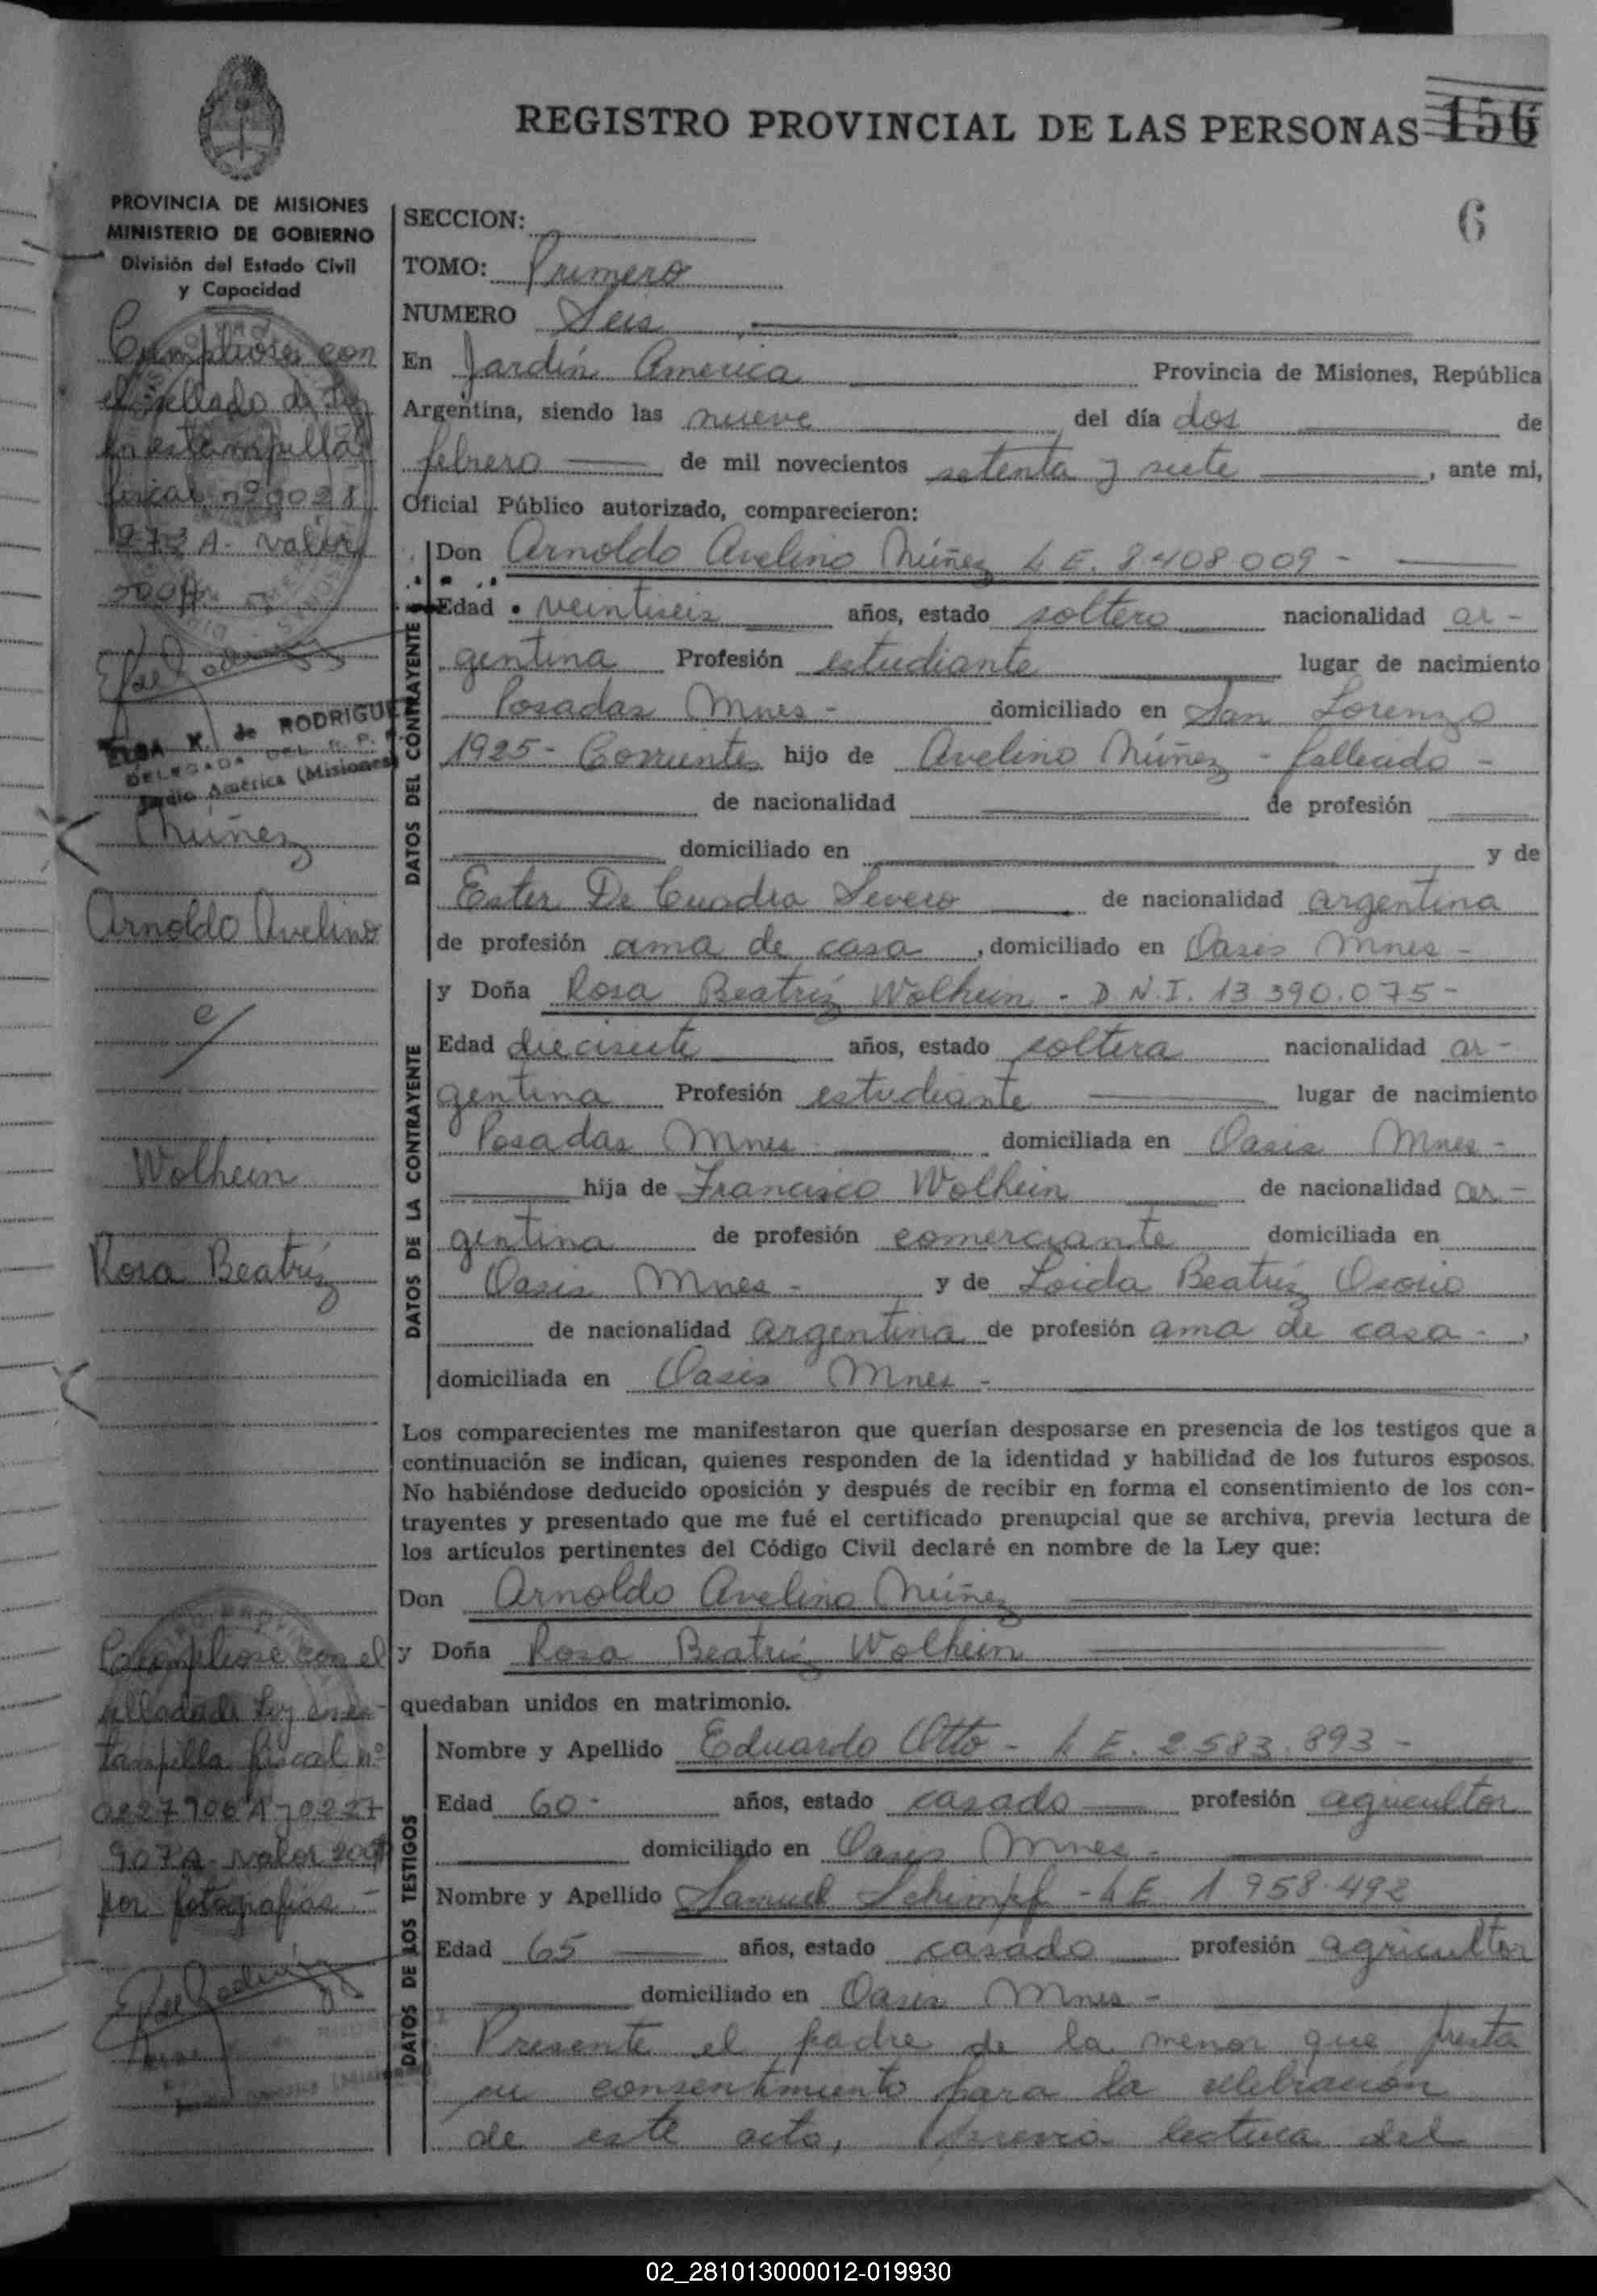 REGISTRO PROVINCIAL DE LAS PERSONAS 156
6
PROVINCIA DE MISIONES
MINISTERIO DE GOBIERNO
División del Estado Civil
y Capacidad
Cumpliose con
el sellado de Ley
en estampilla
fiscal nº 0021
972 A- valor
ELSA K. de RODRIGUE
DELEGADA DEL R. P.
Jardín América (Misiones)
Núñez
Arnoldo Avelino
c/
Wolhein
Rosa Beatríz
Cumpliose con el
sellado de Ley en es-
tampilla fiscal nº
0227906 A y 0227
907 A- valor 200
por fotografías -
SECCION:
TOMO: Primero
NUMERO Seis
En Jardín America Provincia de Misiones, República
Argentina, siendo las nueve del día dos de
febrero de mil novecientos setenta y siete, ante mi,
Oficial Público autorizado, comparecieron:
DATOS DEL CONTRAYENTE
Don Arnoldo Avelino Núñez L E. 8408.009 -
Edad veintiseis años, estado soltero nacionalidad ar-
gentina Profesión estudiante lugar de nacimiento
Posadas Mnes - domiciliado en San Lorenzo
1925 - Corrientes hijo de Avelino Núñez - fallecido -
de nacionalidad de profesión
domiciliado en y de
Ester De Cuadra Severo de nacionalidad argentina
de profesión ama de casa, domiciliado en Oasis Mnes -
DATOS DE LA CONTRAYENTE
y Doña Rosa Beatríz Wolhein - D N.I. 13 390.075 -
Edad diecisiete años, estado soltera nacionalidad ar-
gentina Profesión estudiante lugar de nacimiento
Posadas Mnes domiciliada en Oasis Mnes -
hija de Francisco Wolhein de nacionalidad ar-
gentina de profesión comerciante domiciliada en
Oasis Mnes - y de Loida Beatríz Osorio
de nacionalidad argentina de profesión ama de casa - ,
domiciliada en Oasis Mnes -
Los comparecientes me manifestaron que querían desposarse en presencia de los testigos que a
continuación se indican, quienes responden de la identidad y habilidad de los futuros esposos.
No habiéndose deducido oposición y después de recibir en forma el consentimiento de los con-
trayentes y presentado que me fué el certificado prenupcial que se archiva, previa lectura de
los artículos pertinentes del Código Civil declaré en nombre de la Ley que:
Don Arnoldo Avelino Núñez
y Doña Rosa Beatríz Wolhein
quedaban unidos en matrimonio.
DATOS DE LOS TESTIGOS
Nombre y Apellido Eduardo Otto - L E. 2.583.893 -
Edad 60 - años, estado casado profesión agricultor
domiciliado en Oasis Mnes -
Nombre y Apellido Samuel Schimpf - L E 1 958.492
Edad 65 años, estado casado profesión agricultor
domiciliado en Oasis Mnes -
Presente el padre de la menor que presta
su consentimiento para la celebración
de este acto, previa lectura del
02_281013000012-019930